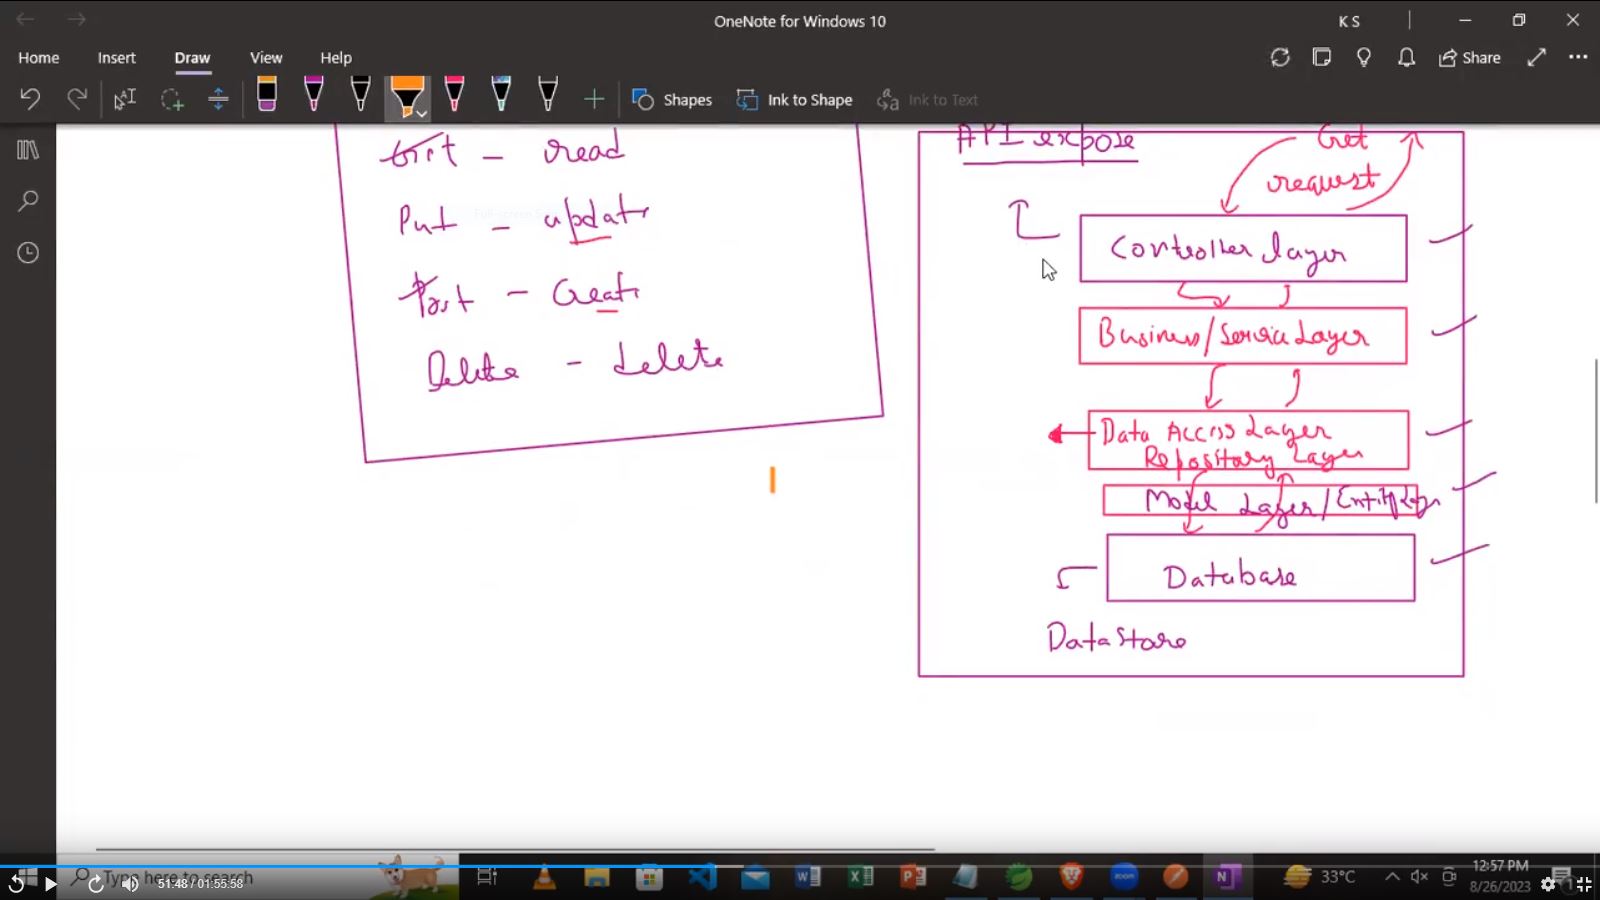 OneNote for Windows 10
K S
Home Insert Draw View Help
Share
Shapes
Ink to Shape
Ink to Text
Get - read
Put - update
Post - Create
Delete - delete
API expose
Get
request
Controller layer
Business/Service Layer
Data Access Layer
Repository Layer
Model Layer/Entity Layer
Database
Data Store
Type here to search
51:48 / 01:55:58
33°C
12:57 PM
8/26/2023